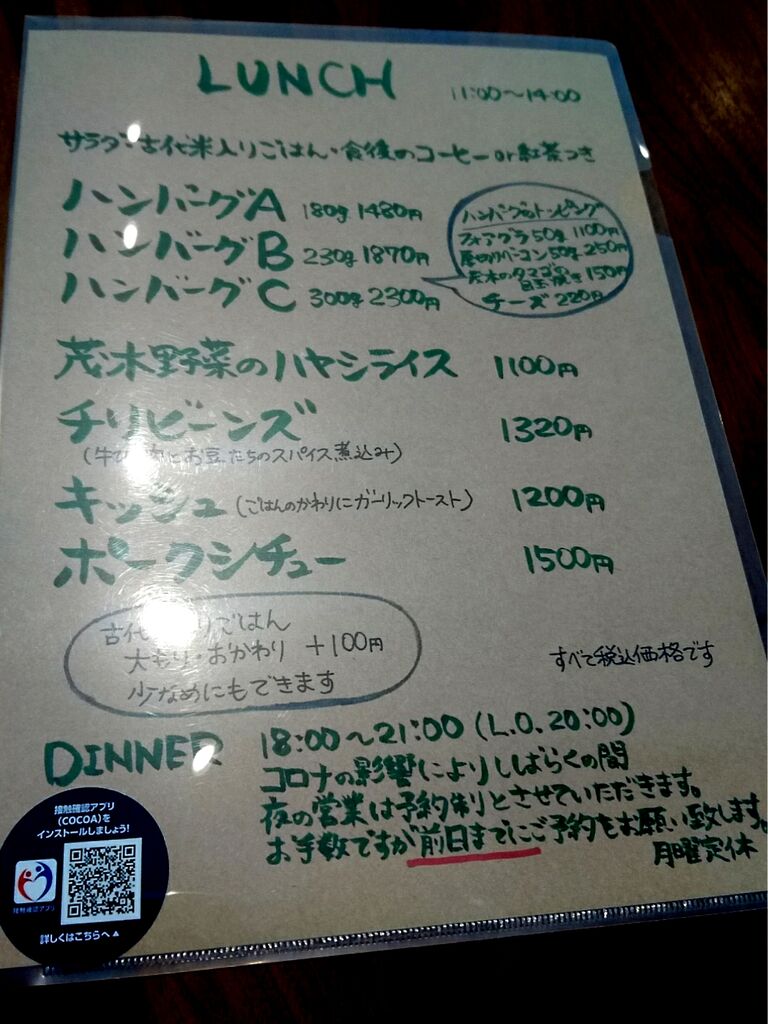 LUNCH 11:00～14:00
サラダ・古代米入りごはん・食後のコーヒーor紅茶つき
ハンバーグA 180g 1480円
ハンバーグB 230g 1870円
ハンバーグC 300g 2300円
ハンバーグのトッピング
フォアグラ50g 1100円
厚切りベーコン50g 250円
茂木のタマゴの目玉焼き 150円
チーズ 220円
茂木野菜のハヤシライス 1100円
チリビーンズ 1320円
(牛ひ 肉とお豆たちのスパイス煮込み)
キッシュ(ごはんのかわりにガーリックトースト) 1200円
ポークシチュー 1500円
古代 りごはん
大もり・おかわり +100円
少なめにもできます
すべて税込価格です
DINNER 18:00～21:00 (L.O.20:00)
コロナの影響によりしばらくの間
夜の営業は予約制とさせていただきます。
お手数ですが前日までにご予約をお願い致します。
月曜定休
接触確認アプリ
(COCOA)を
インストールしましょう!
接触確認アプリ
詳しくはこちらへ▲